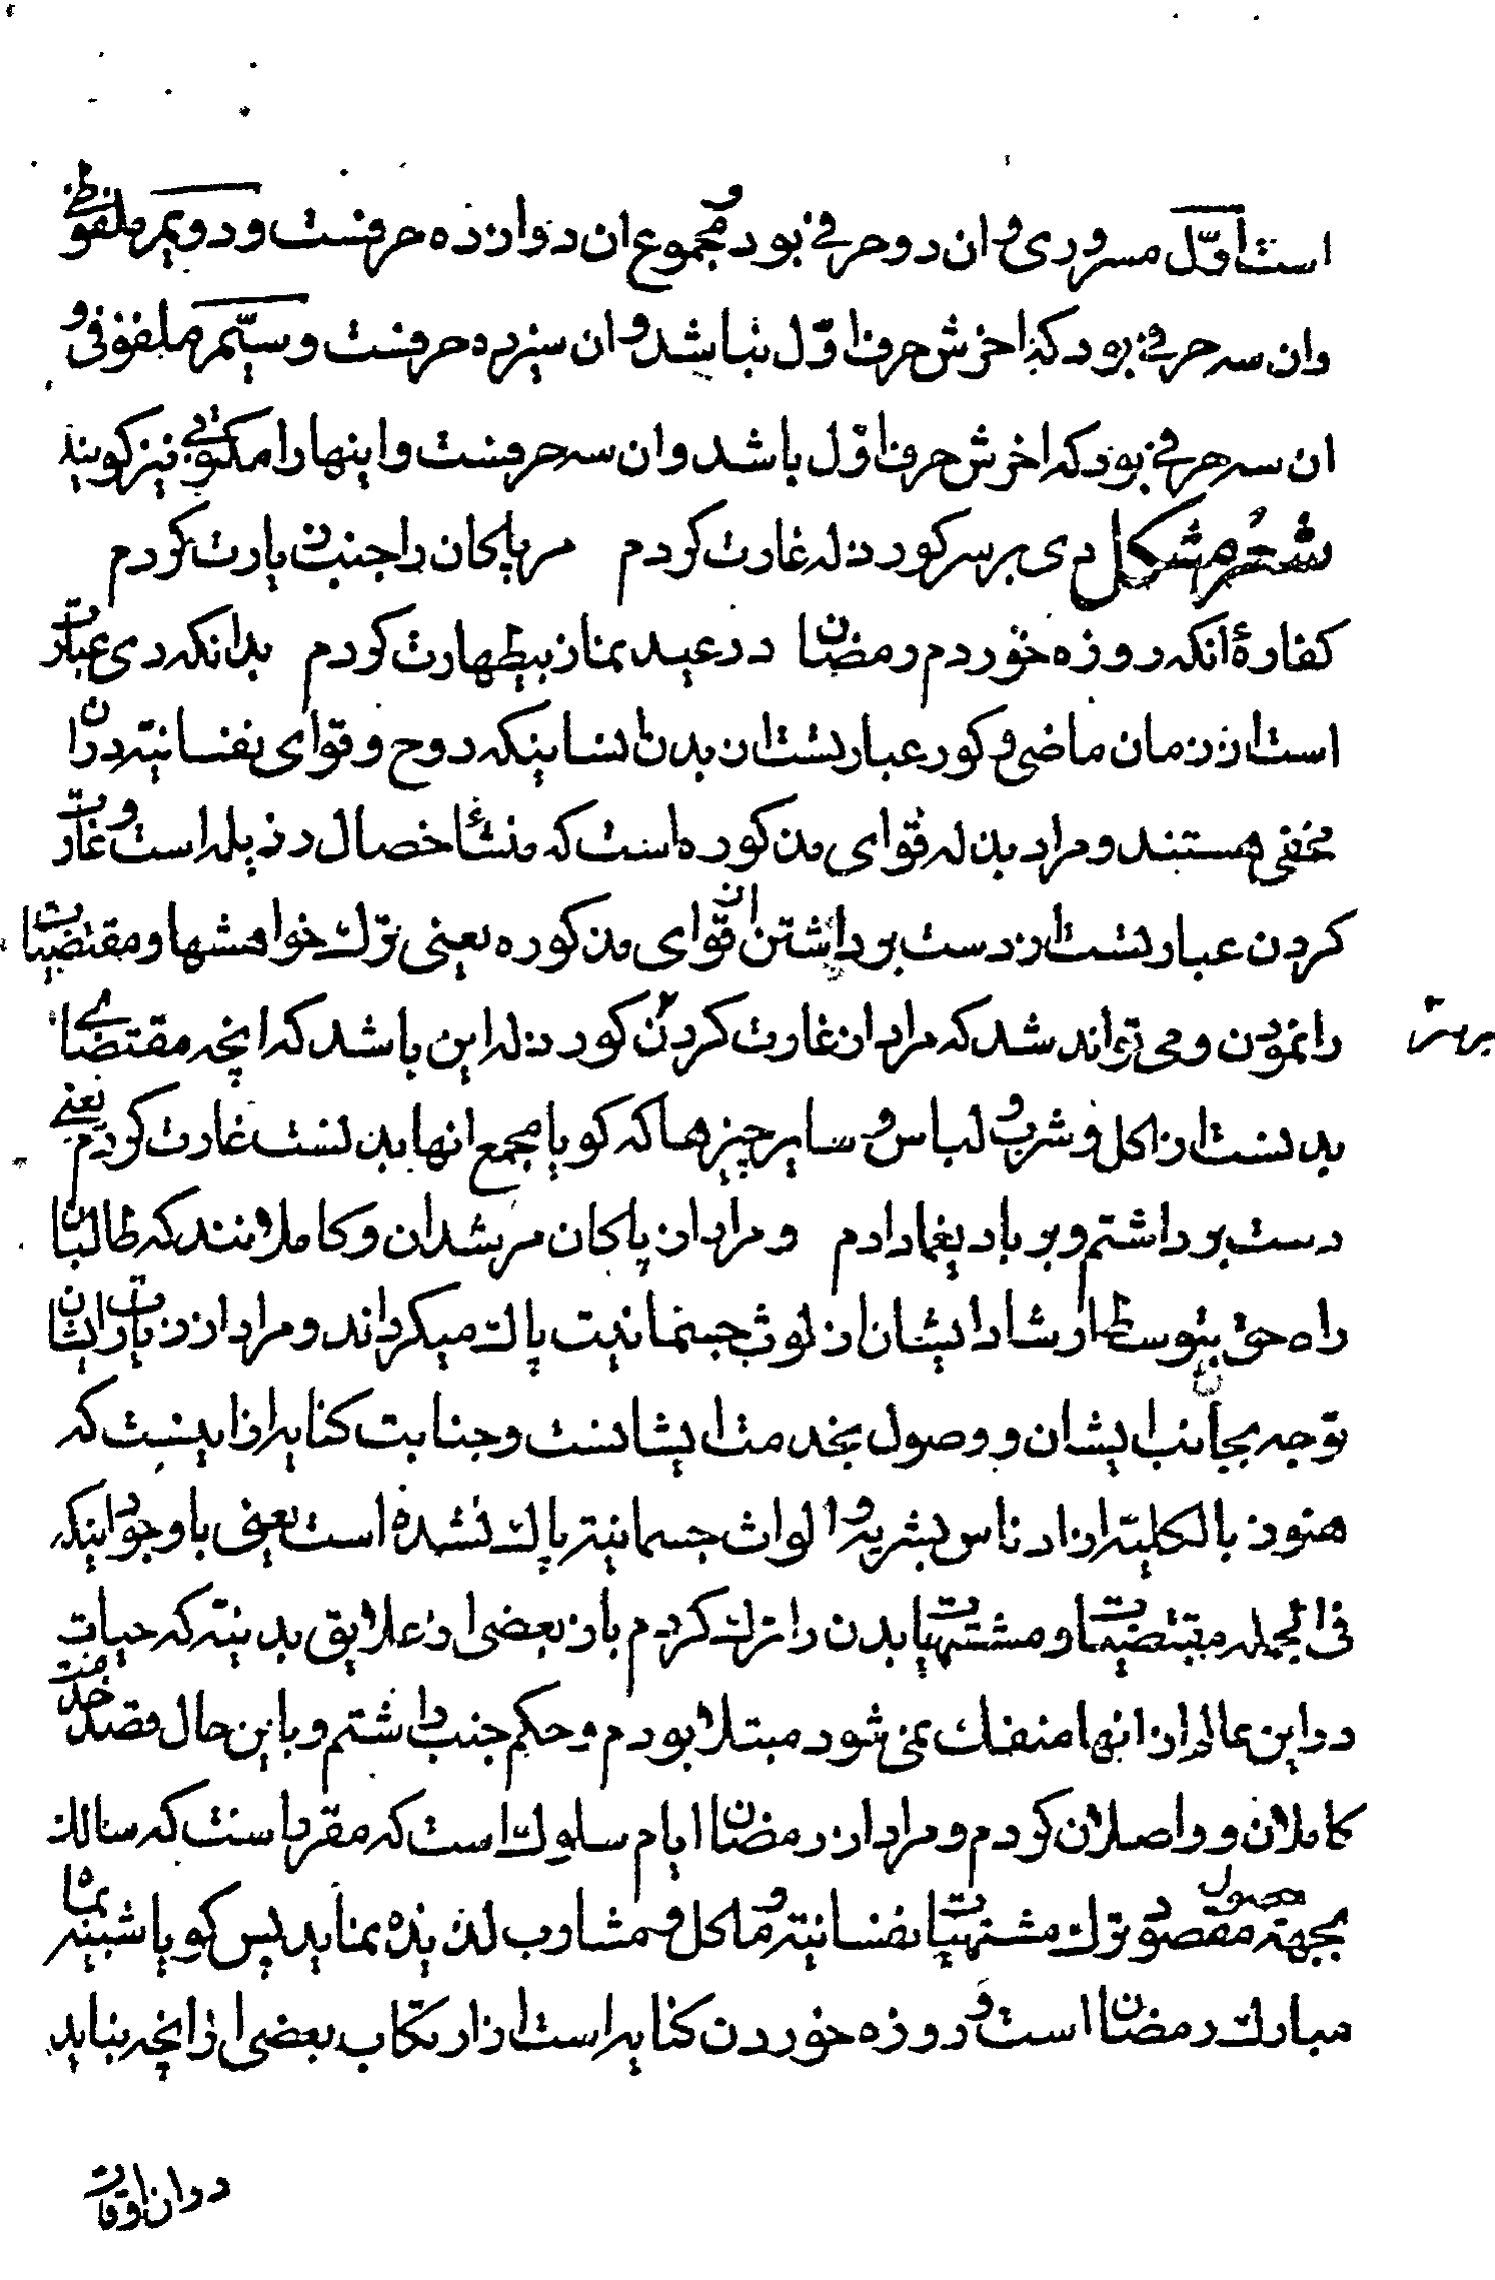 است اوّل مسروری و ان دو حرفی بود و مجموع ان دوازده حرفست و دویم ملفوظی
وان سه حرفی بود که اخرش حرف اوّل نباشد و ان سیزده حرفست و سیّم ملفوفی و
ان سه حرفی بود که اخرش حرف اوّل باشد وان سه حرفست و اینها را مکتوبی نیز کویند
شعر مشکل دی بر سر کور دله غارت کردم مر پاکان را جنب زیارت کردم
کفارهٔ انکه روزه خوردم رمضان در عید نماز بیطهارت کردم بدانکه دی عبارت
است از زمان ماضی و کور عبارتست از بدن انسا نیکه روح و قوای نفسانیّه در ان
مخفی هستند و مراد بدله قوای مذکوره است که منشأ خصال رذیله است و غارت
کردن عبارتست از دست برداشتن از قوای مذکوره یعنی ترک خواهشها و مقتضیات
را نمودن و می تواند شد که مراد از غارت کردن کور دله این باشد که انچه مقتضای
بدنست از اکل و شرب و لباس و سایر چیزها که کویا مجمع انها بدنست غارت کردم یعنی
دست برداشتم و بر باد یغما دادم و مراد از پاکان مرشدان و کاملانند که طالبان
راه حق بتوسط ارشاد ایشان از لوث جسمانیت پاک میکرداند و مراد از زیارت ایشان
توجه بجانب ایشان و وصول بخدمت ایشانست و جنابت کنایه از اینست که
هنوز بالکلیّه از ادناس بشریه و الواث جسمانیّه پاک نشده است یعنی باوجود اینکه
فی الجمله مقتضیات و مشتهیات بدن را ترک کردم باز بعضی از علایق بدنیّه که حیات
در این عالم از انها منفک نمی شود مبتلا بودم و حکم جنب داشتم و باین حال قصد خدمت
کاملان و واصلان کردم و مراد از رمضان ایام سلوک است که مقرر است که سالک
بجهة حصول مقصود ترک مشتهیات نفسانیّه و ماکل و مشارب لذیذه نماید پس کویا شبیه بماه
مبارک رمضان است و روزه خوردن کنایه است از ارتکاب بعضی از انچه نباید
در ان اوقات